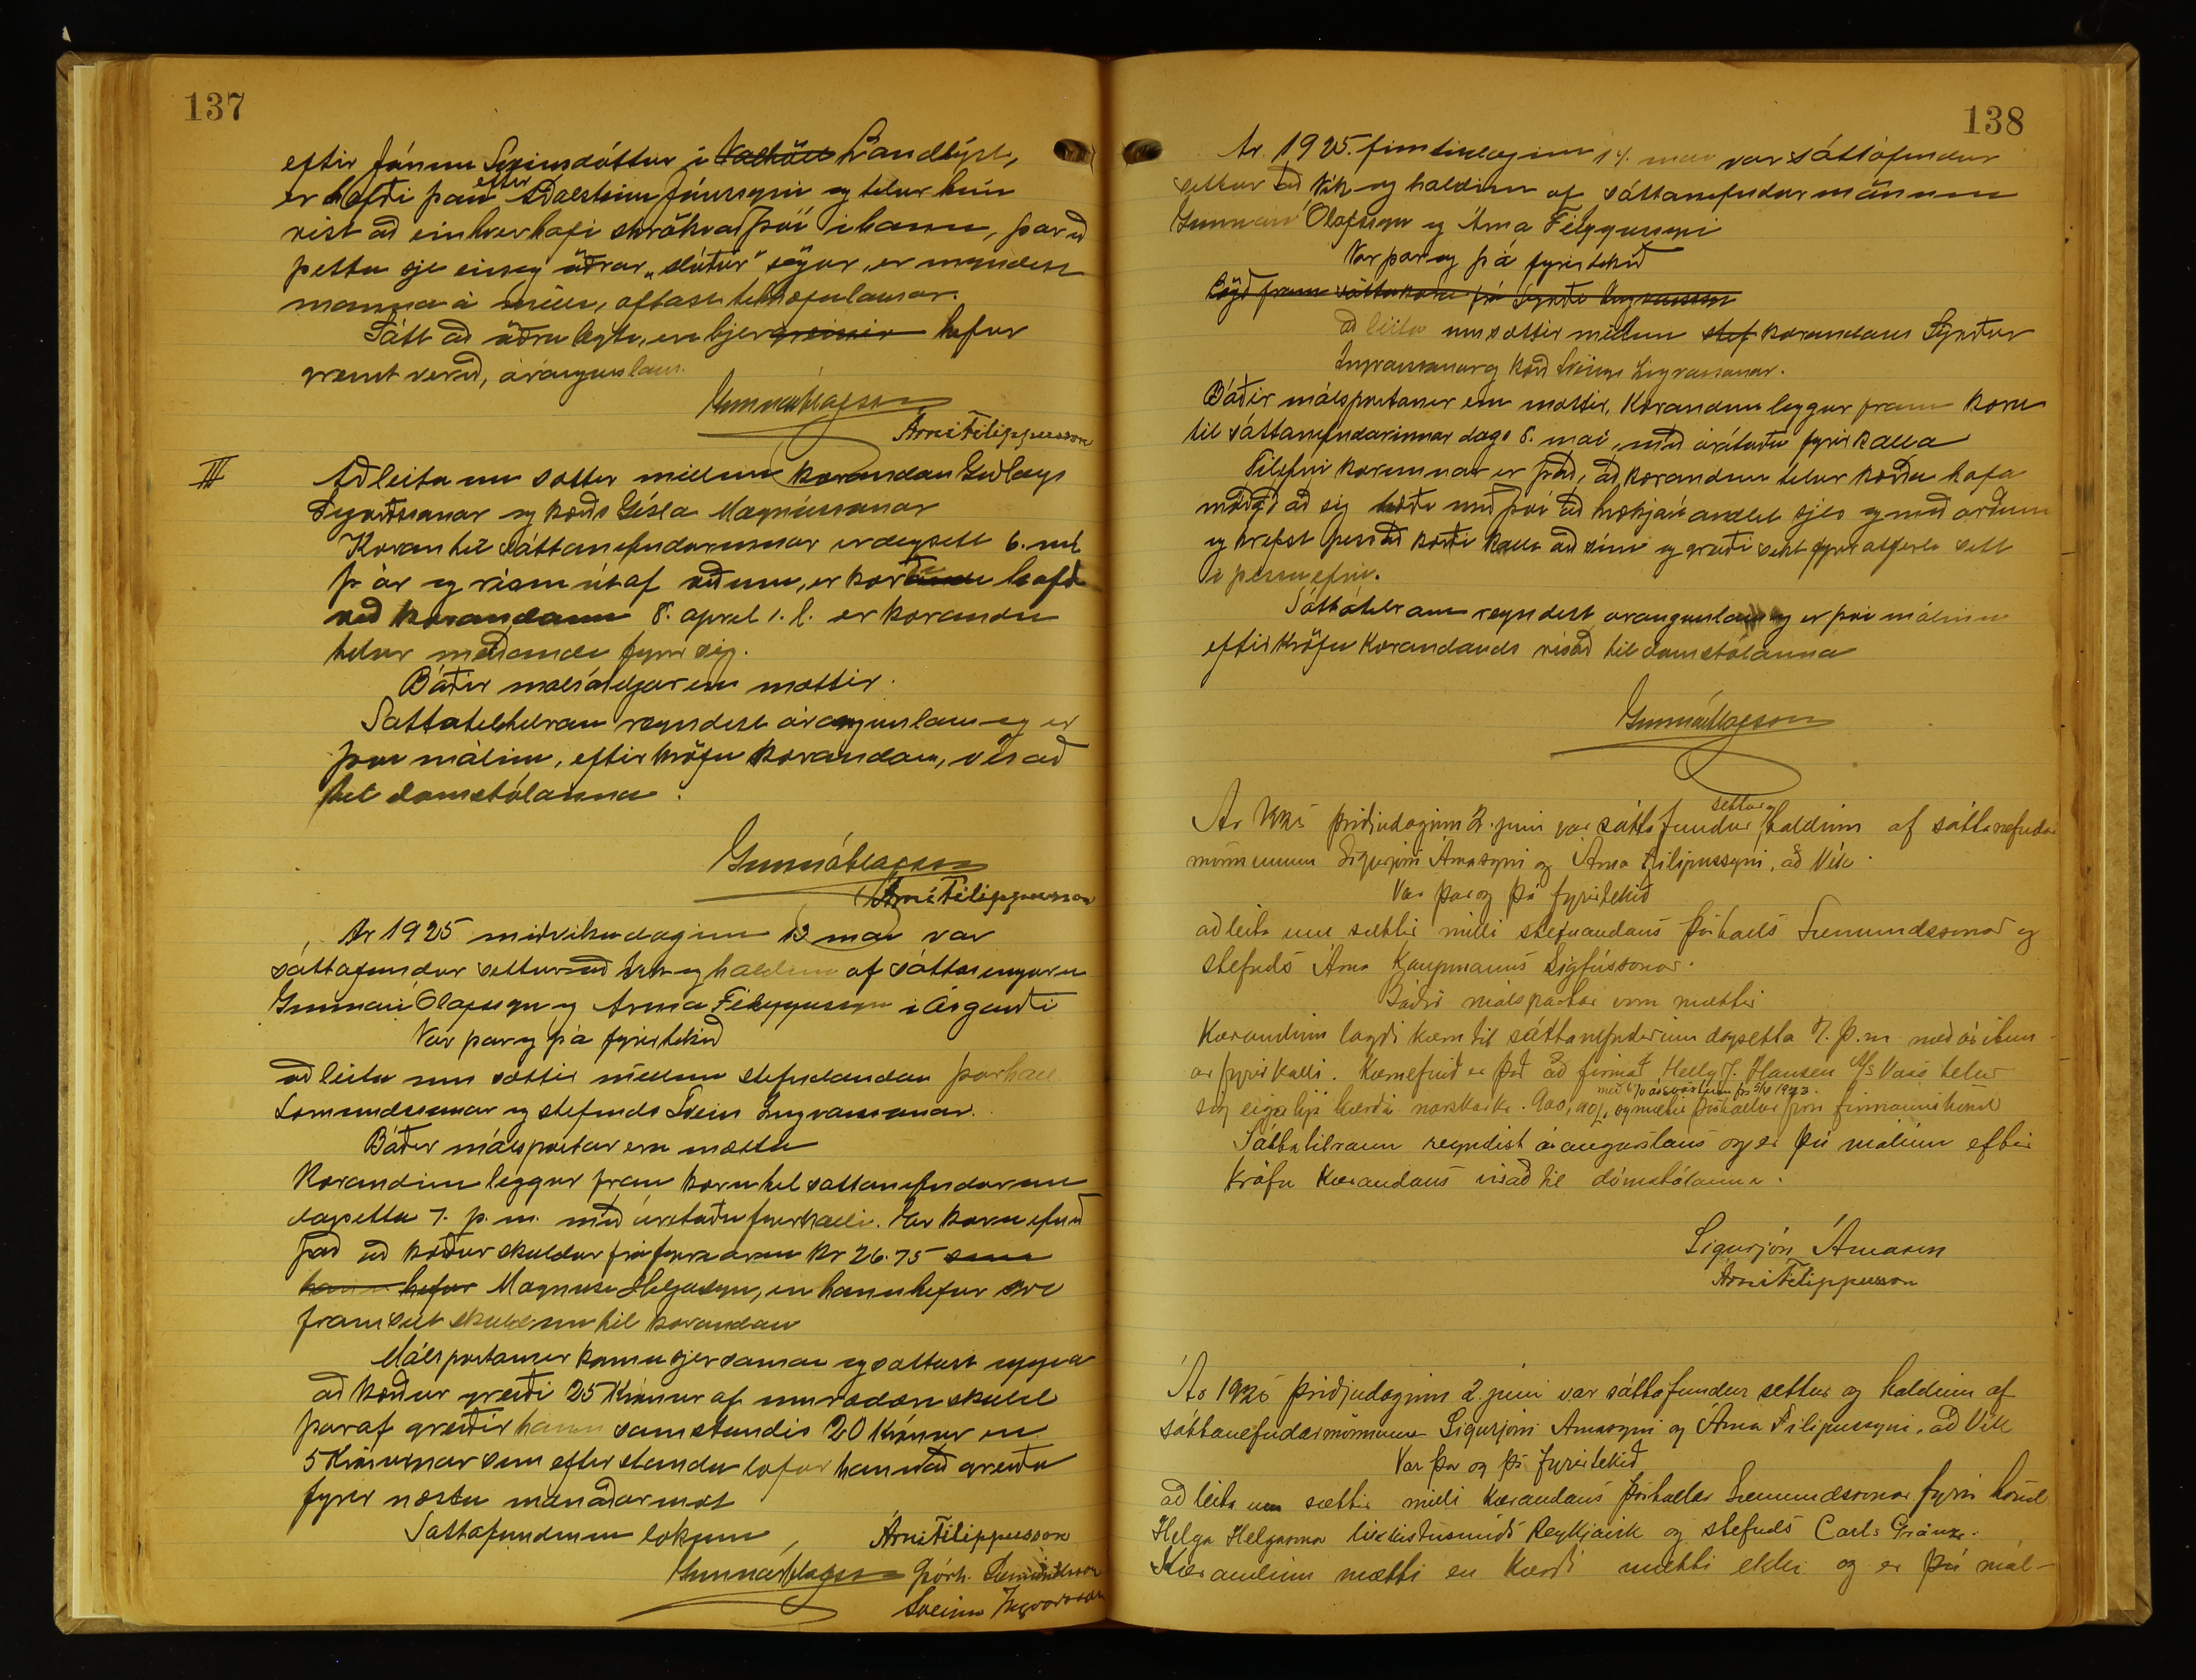 137
eftir Jónínu Sveinsdóttur í Valhöll Landlyst,
er hefði það eftir Aðalsteini Jónssyni og telur hún
víst að einhver hafi skrökvað því í hann, þar eð
þetta sje eins og aðrar "slúður" sögur, er myndast
manna á milli, oftast tilhæfulausar.
Sátt að öðru leyti, en hjer greinir hefur
verið, árangurslaus.
Gunnar Ólafsson
Árni Filippusson
III
Að leita um sættir millum kærandans Guðlaugs
Sigurðssonar og kærðs Gísla Magnússonar
Kæran til sáttanefndarinnar er dagsett 6. maí
þ. ár og risin út af orðum, er kærði hafði
við kærandann 8. apríl s. l. er kærandi
telur meiðandi fyrir sig.
Báðir málsaðiljar eru mættir.
Sáttatilraun reyndist árangurslaus og er
því málinu, eftir kröfu kærandans, vísað
til domstólanna.
Gunnar Ólafsson
Árni Filippusson
Ár 1925 miðvikudaginn 13 maí var
sáttafundur settur að Vík og haldinn af sáttamönnum
Gunnari Ólafssyni og Árna Filippussyni í Ásgarði
Var þar og þá fyrirtekið
að leita um sættir millum stefnandans Þórhalls
Sæmundssonar og stefnds Sveins Ingvarssonar.
Báðir málspartar eru mættir
Kærandinn leggur fram kæru til sáttanefndarinnar
dagsetta 7. þ. m. með árituðu fyrirkalli. Er kæruefnið
það að kærður skuldar frá fyrra ári kr 26.75 sem
hann hefur Magnúsi Helgasyni, en hann hefur
framselt skuldina til kærandans
Málspartarnir komu sjer saman og sættust uppá
að kærður greiði 25 Krónur af umræddri skuld
þaraf greiðir hann samstundis 20 Krónur en
5 Krónurnar sem eftir standa lofar hann að greiða
fyrir næstu mánaðarmót
Sáttafundinum lokið
Árni Filippusson
Gunnar Ólafsson Þórh. Sæmundsson
Sveinn Ingvarsson
138
Ár 1925 fimtudaginn 14. maí var sáttafundur
settur að Vík og haldinn af sáttanefndarmönnum
Gunnari Ólafssyni og Árna Filippussyni
Var þar og þá fyrirtekið
Lögð fram sáttakæra frá Sigurði Ingvarssyni
að leita um sættir millum stef kærandans Sigurðar
Ingvarssonar og kærð Sveins Ingvarssonar.
Báðir málspartarnir eru mættir. Kærandinn leggur fram kæru
til sáttanefndarinnar dags 8. maí, með árituðu fyrirkalla
Tilefni kærunnar er það, að kærandinn telur kærða hafa
móðgað sig bæði með því að hrækja í andlit sjer og með orðum
og krefst þess að kærði kalli orð sín og greiði sekt fyrir atferli sitt
í þessu efni.
Sáttatilraun reyndist árangurslaus og er því málinu
eftir kröfu kærandans vísað til domstólanna
Gunnar Ólafsson
Ár 1925 þriðjudaginn 2. júní var sáttafundur settur og haldinn af sáttanefndar
mönnunum Sigurjóni Árnasyni og Árna Filipussyni, að Vík.
Var þar og þá fyrirtekið
að leita um sættir milli stefnandans Þórhalls Sæmundssonar og
stefnds Árna Kaupmanns Sigfússonar.
Báðir málspartar voru mættir
Kærandinn lagði kæru til sáttanefndarinnar dagsetta 7. þ. m. með áritun
ar fyrirkalli. Kæruefnið er það að firmað Helly J. Hansen A/S Moss telur
með 6% ársvöxtum frá 5/10 1923.
sig eiga hjá kærða norskar kr. 900,00, og mætir Þórhallur fyrir firmans hönd
Sáttatilraun reyndist árangurslaus og er því málinu eftir
kröfu kærandans vísað til dómstólanna.
Sigurjón Árnason
Árni Filippusson
Ár 1925 þriðjudaginn 2. júní var sáttafundur settur og haldinn af
sáttanefndarmönnum Sigurjóni Árnasyni og Árna Filipussyni, að Vík
Var þar og þá fyrirtekið
að leita um sættir milli kærandans Þórhalls Sæmundssonar fyrir hönd
Helga Helgasonar líkkistusmiðs Reykjavík og stefnds Carls Gränz.
Kærandinn mætti en kærði mætti ekki og er því mál-